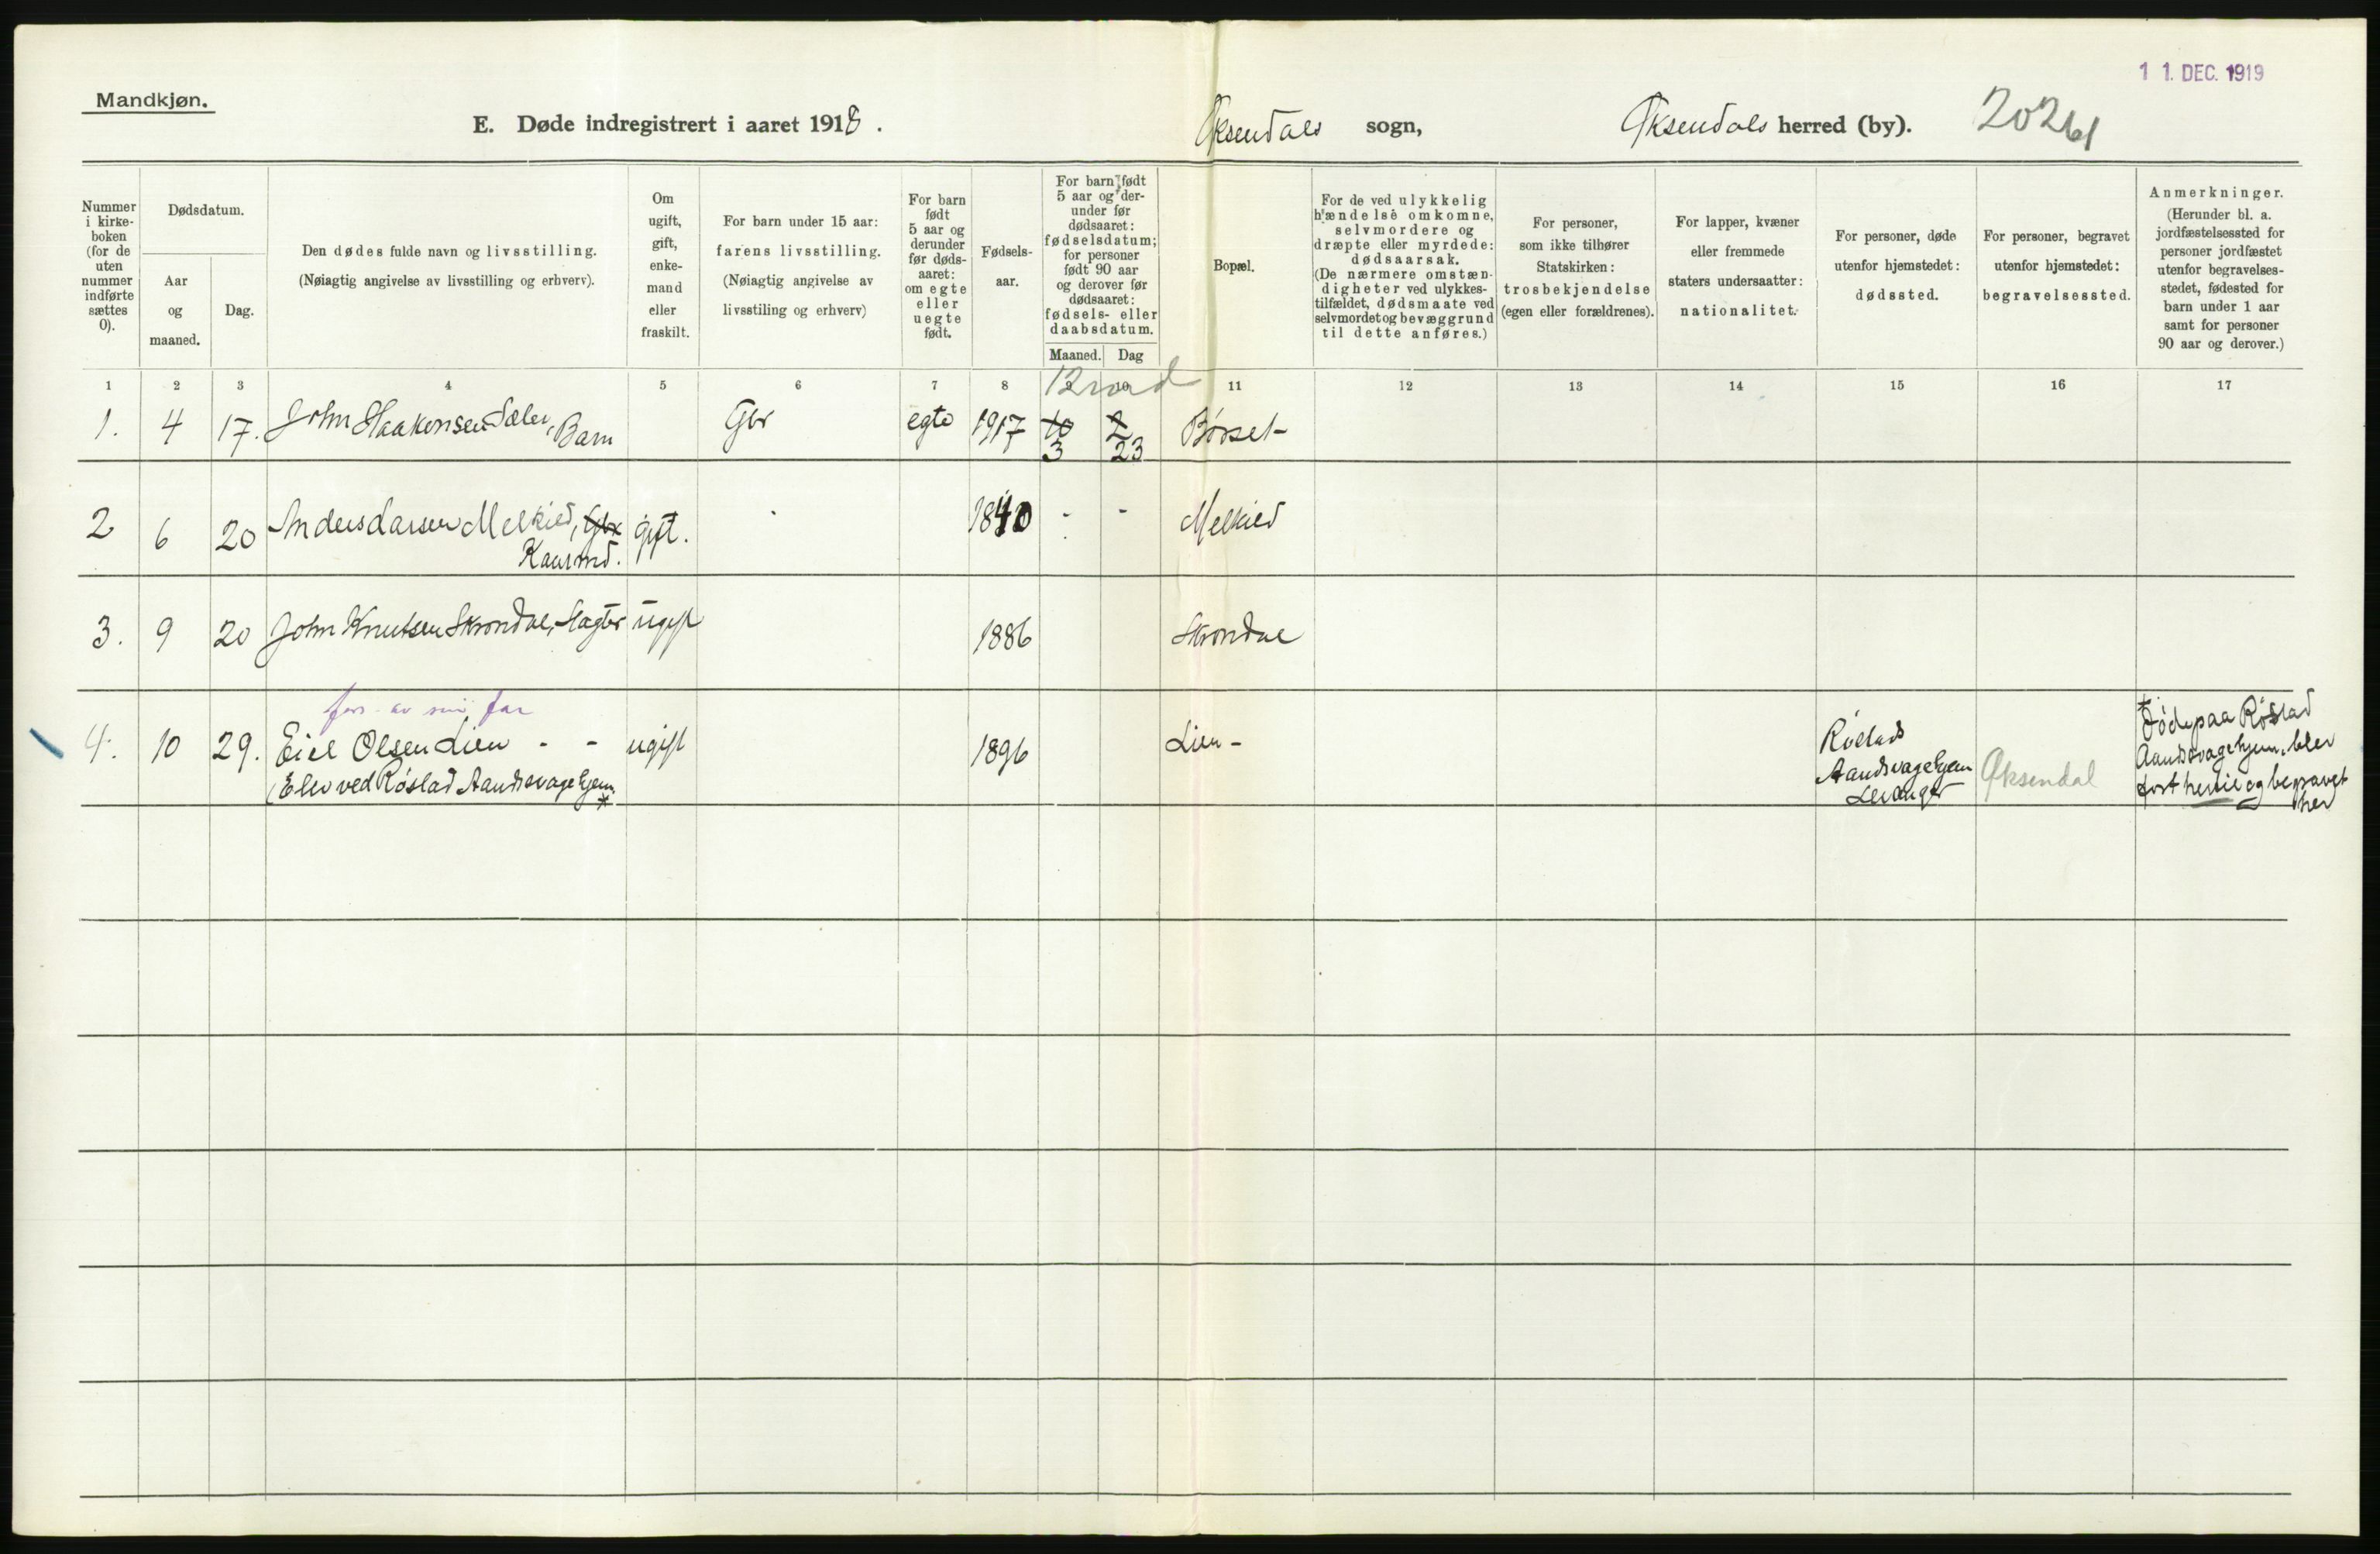 11. DEC. 1919
Mandkjøn.
E. Døde indregistrert i aaret 1918.
Øksendals sogn,
Øksendals herred (by).
Nummer
i kirke-
boken
(for de
uten
nummer
indførte
sættes
0).
Dødsdatum.
Aar
og
maaned.
Dag.
Den dødes fulde navn og livsstilling.
(Nøiagtig angivelse av livsstilling og erhverv).
Om
ugift,
gift,
enke-
mand
eller
fraskilt.
For barn under 15 aar:
farens livsstilling.
(Nøiagtig angivelse av
livsstiling og erhverv)
For barn
født
5 aar og
derunder
før døds-
aaret:
om egte
eller
uegte
født.
Fødsels-
aar.
For barn født
5 aar og der-
under før
dødsaaret:
fødselsdatum;
for personer
født 90 aar
og derover før
dødsaaret:
fødsels- eller
daabsdatum.
Maaned. Dag
Bopæl.
For de ved ulykkelig
hændelse omkomne,
selvmordere og
dræpte eller myrdede:
dødsaarsak.
(De nærmere omstæn-
digheter ved ulykkes-
tilfældet, dødsmaate ved
selvmordet og bevæggrund
til dette anføres.)
For personer,
som ikke tilhører
Statskirken:
trosbekjendelse
(egen eller forældrenes).
For lapper, kvæner
eller fremmede
staters undersaatter:
nationalitet.
For personer, døde
utenfor hjemstedet:
dødssted.
For personer, begravet
utenfor hjemstedet:
begravelsessted.
Anmerkninger.
(Herunder bl. a.
jordfæstelsessted for
personer jordfæstet
utenfor begravelses-
stedet, fødested for
barn under 1 aar
samt for personer
90 aar og derover.)
1 2 3 4 5 6 7 8 9 10 11 12 13 14 15 16 17
1. 4 17. John Haakonsen Barn Gbr egte 1917 3 23 Børset
2 6 20 Anders Larsen Melkild, Gbr gift. 1840 - - Melkild
Kaarmd.
3. 9 20 John Knutsen Skrondal, ugift 1886 Skrondal
fors. av sin far
4. 10 29. Eiel Olsen Lien - - ugift 1896 Lien -
(Elev ved Røstad Aandsvagehjem.
*
Røstad
Aandsvagehjem
Levanger
Øksendal
* Døde paa Røstad
Aandsvagehjem, blev
ført hertil og begravet
her